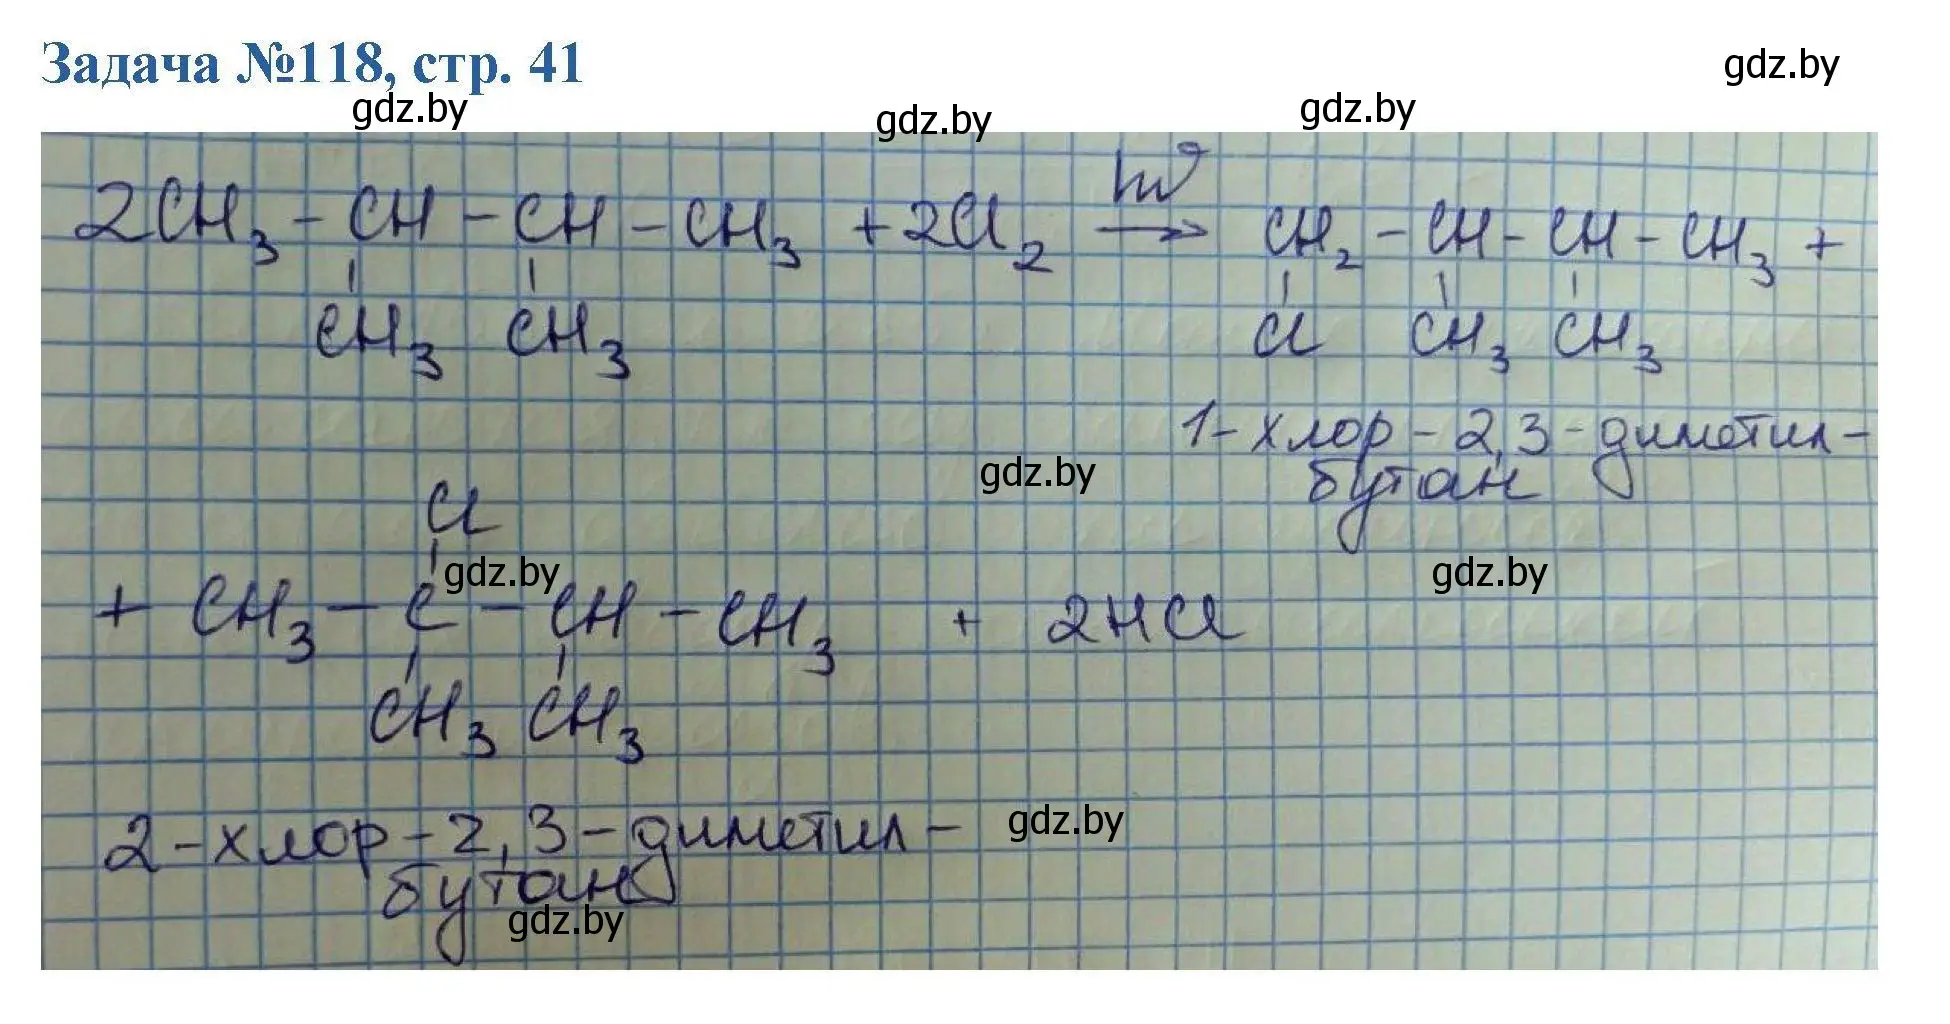 Задача №118, стр. 41
gdz.by
gdz.by
gdz.by
gdz.by
2CH3 - CH - CH - CH3 + 2Cl2 hν → CH2 - CH - CH - CH3 +
CH3 CH3 Cl CH3 CH3
1-хлор-2,3-диметил-
бутан
gdz.by
Cl
gdz.by
gdz.by
+ CH3 - C - CH - CH3 + 2HCl
CH3 CH3
2-хлор-2,3-диметил-
бутан
gdz.by
gdz.by